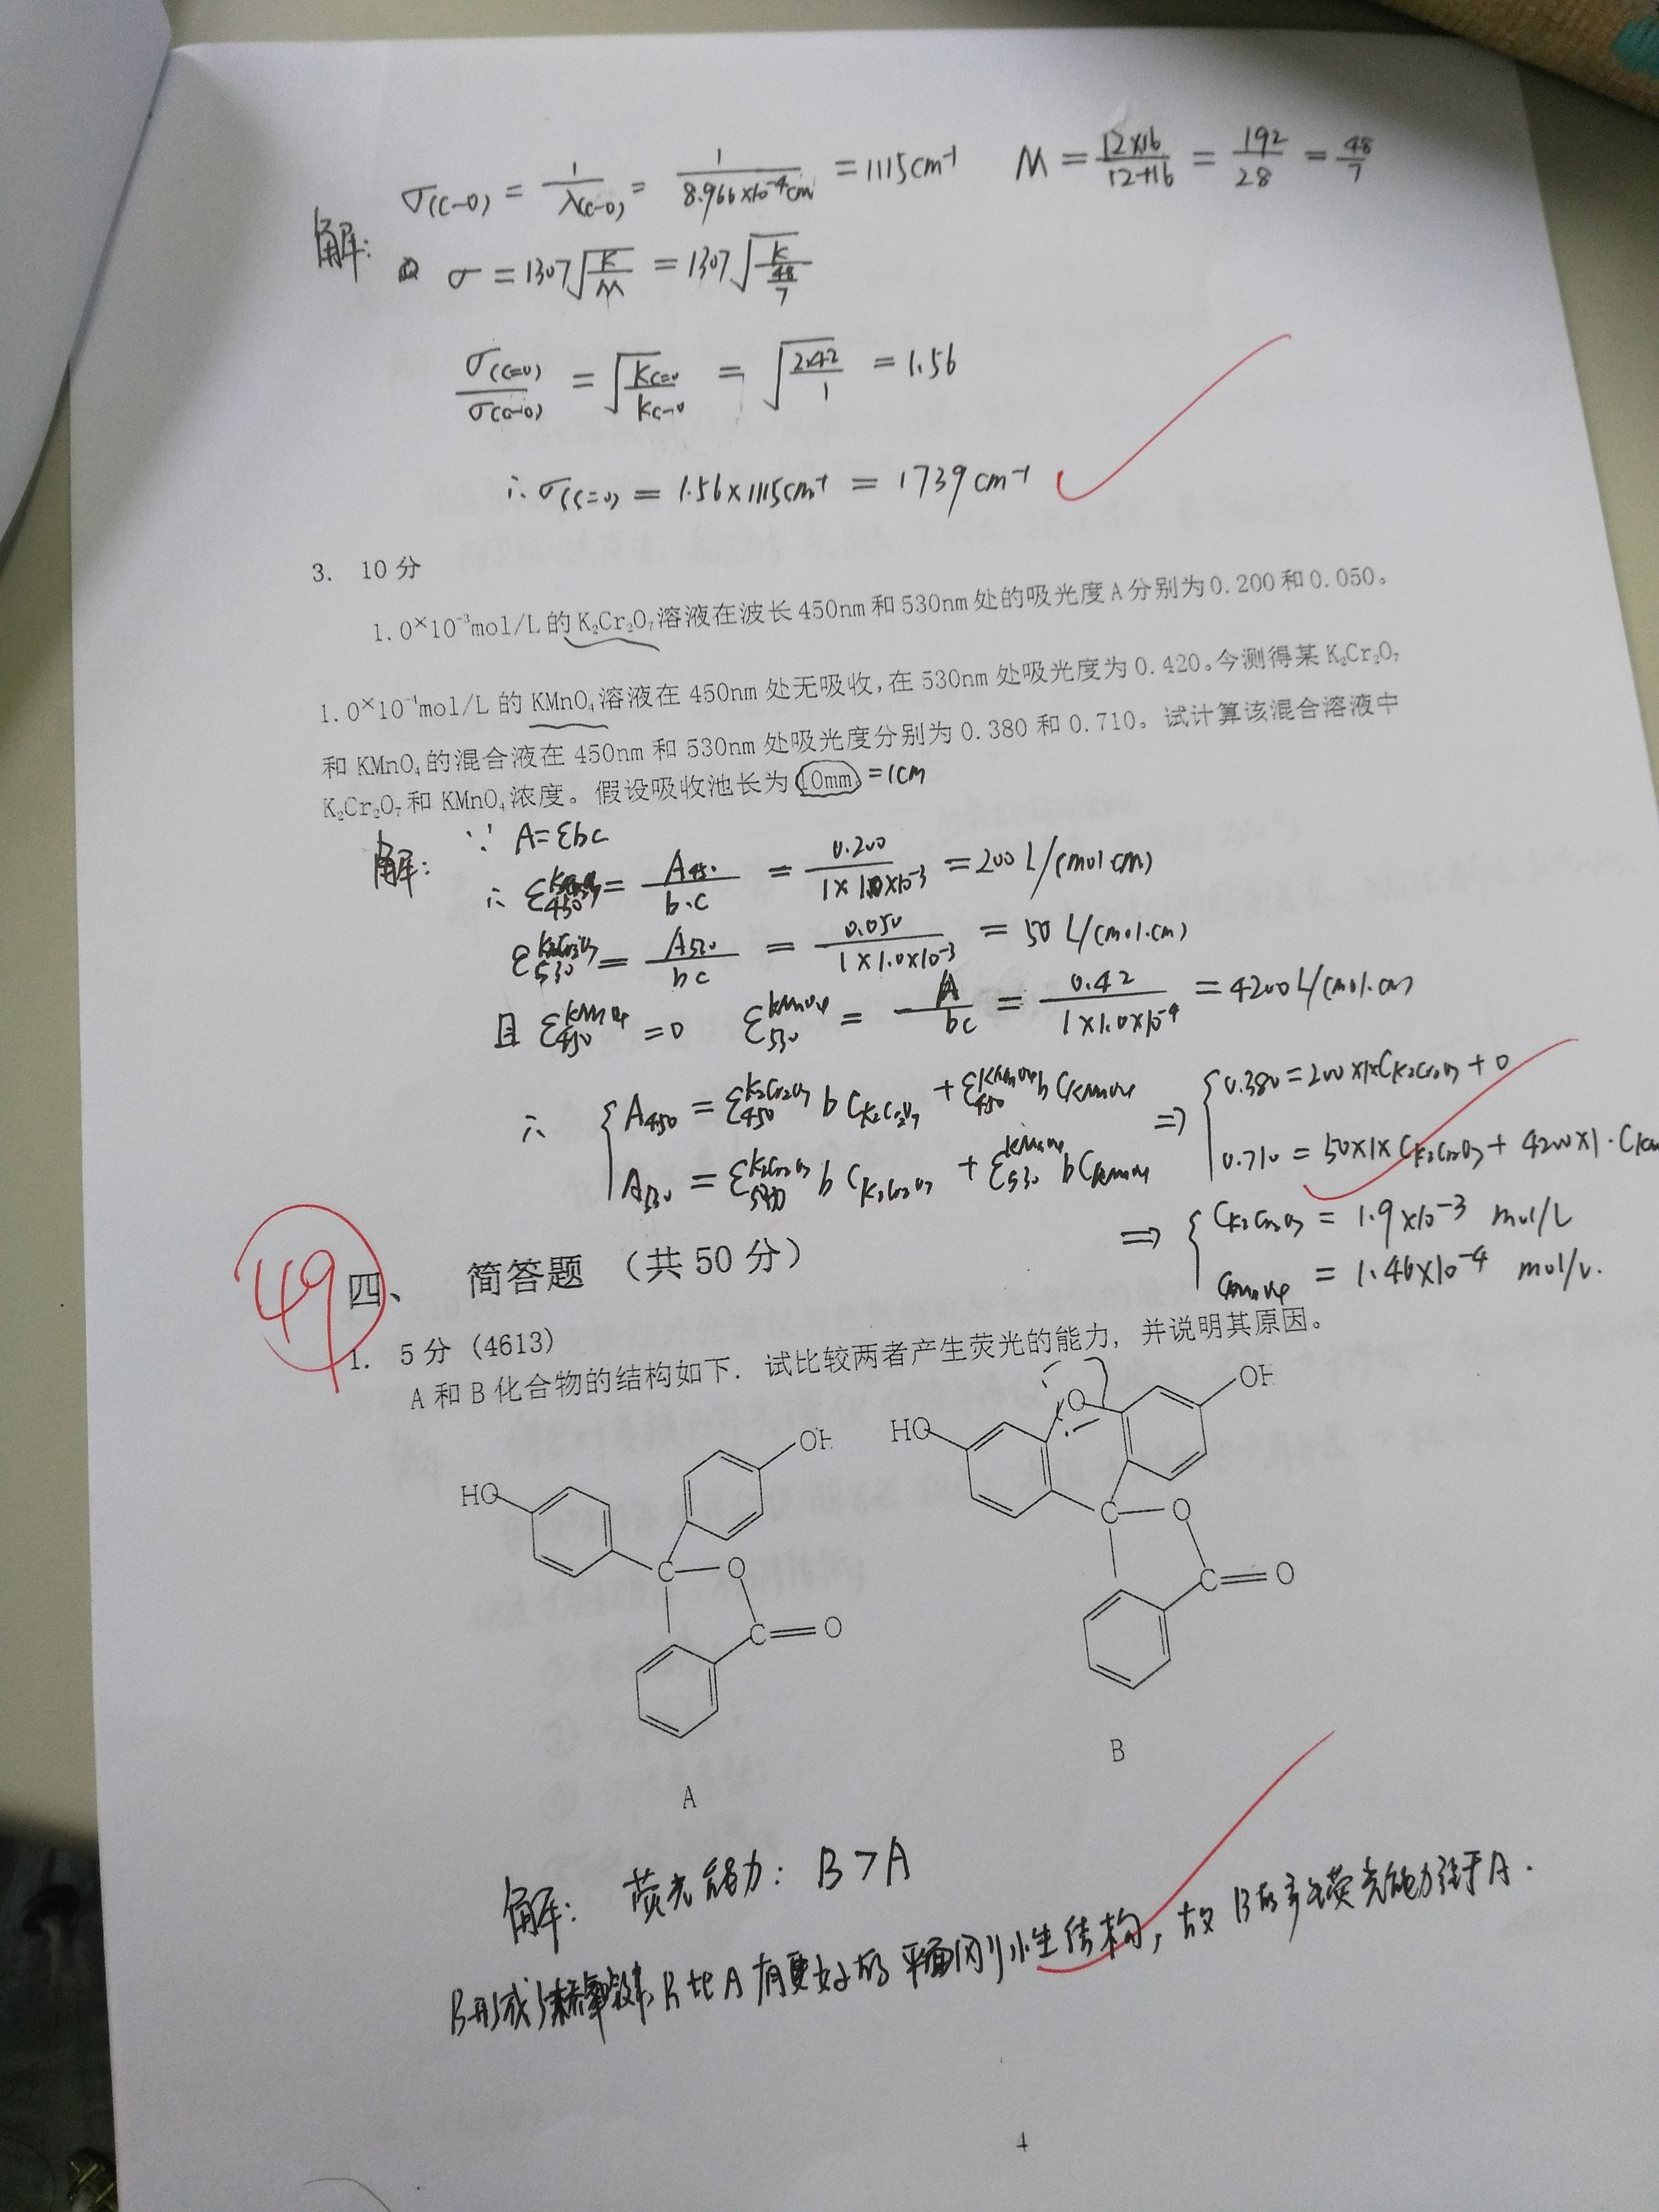 σ(C-O) = 1/λ(C-O) = 1/8.966×10⁻⁴cm = 1115cm⁻¹ M = 12×16/12+16 = 192/28 = 48/7
解: σ = 1307√(K/M) = 1307√(K/(48/7))
σ(C=O)/σ(C-O) = √(K C=O/K C-O) = √(2.42/1) = 1.56
∴ σ(C=O) = 1.56×1115cm⁻¹ = 1739cm⁻¹
3. 10分
1.0×10⁻³mol/L的K₂Cr₂O₇溶液在波长450nm和530nm处的吸光度A分别为0.200和0.050。
1.0×10⁻⁴mol/L的KMnO₄溶液在450nm处无吸收,在530nm处吸光度为0.420。今测得某K₂Cr₂O₇
和KMnO₄的混合液在450nm和530nm处吸光度分别为0.380和0.710。试计算该混合溶液中
K₂Cr₂O₇和KMnO₄浓度。假设吸收池长为10mm。=1cm
解: ∵ A=εbc
∴ ε450 = A450/b·c = 0.200/1×1.0×10⁻³ = 200L/(mol·cm)
ε530 K₂Cr₂O₇ = A530/bc = 0.050/1×1.0×10⁻³ = 50L/(mol·cm)
且 ε450 KMnO₄ = 0 ε530 KMnO₄ = A/bc = 0.42/1×1.0×10⁻⁴ = 4200L/(mol·cm)
∴ { A450 = ε450 K₂Cr₂O₇ b C K₂Cr₂O₇ + ε450 KMnO₄ b C KMnO₄ ⇒ { 0.380=200×1×C K₂Cr₂O₇ + 0
A530 = ε530 K₂Cr₂O₇ b C K₂Cr₂O₇ + ε530 KMnO₄ b C KMnO₄ 0.710 = 50×1×C K₂Cr₂O₇ + 4200×1·C
⇒ { C K₂Cr₂O₇ = 1.9×10⁻³ mol/L
C KMnO₄ = 1.46×10⁻⁴ mol/L.
49
四、 简答题 (共50分)
1. 5分 (4613)
A和B化合物的结构如下. 试比较两者产生荧光的能力, 并说明其原因。
HO OH C O C O
A
HO O OH C O C O
B
解: 荧光能力: B>A
B形成 B比A有更好的平面刚性结构, 故B的产生荧光能力强于A.
4